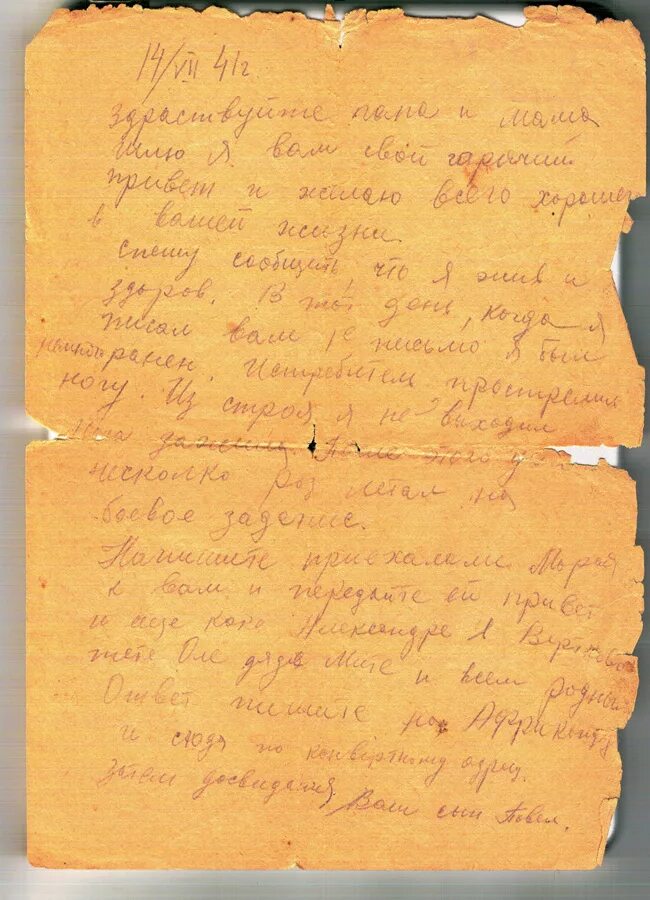 14/VII 41г.
здраствуйте папа и мама
шлю я вам свой гарячий
привет и желаю всего хорошего
в вашей жизни
спешу сообщить, что я жив и
здоров. В тот день, когда я
писал вам письмо я был
ранен. Истребитель прострелил
ногу. Из строя я не выходил
нога зажила. После этого уже
несколко раз летал на
боевое задание.
Напишите приехалали Маруся
к вам и передайте ей привет
и еще Александре и
тете Оле дяде Мите и всем родным
Ответ пишите на Африканду
и сюда по конвертному адресу.
Затем досвидания, Ваш сын Павел.